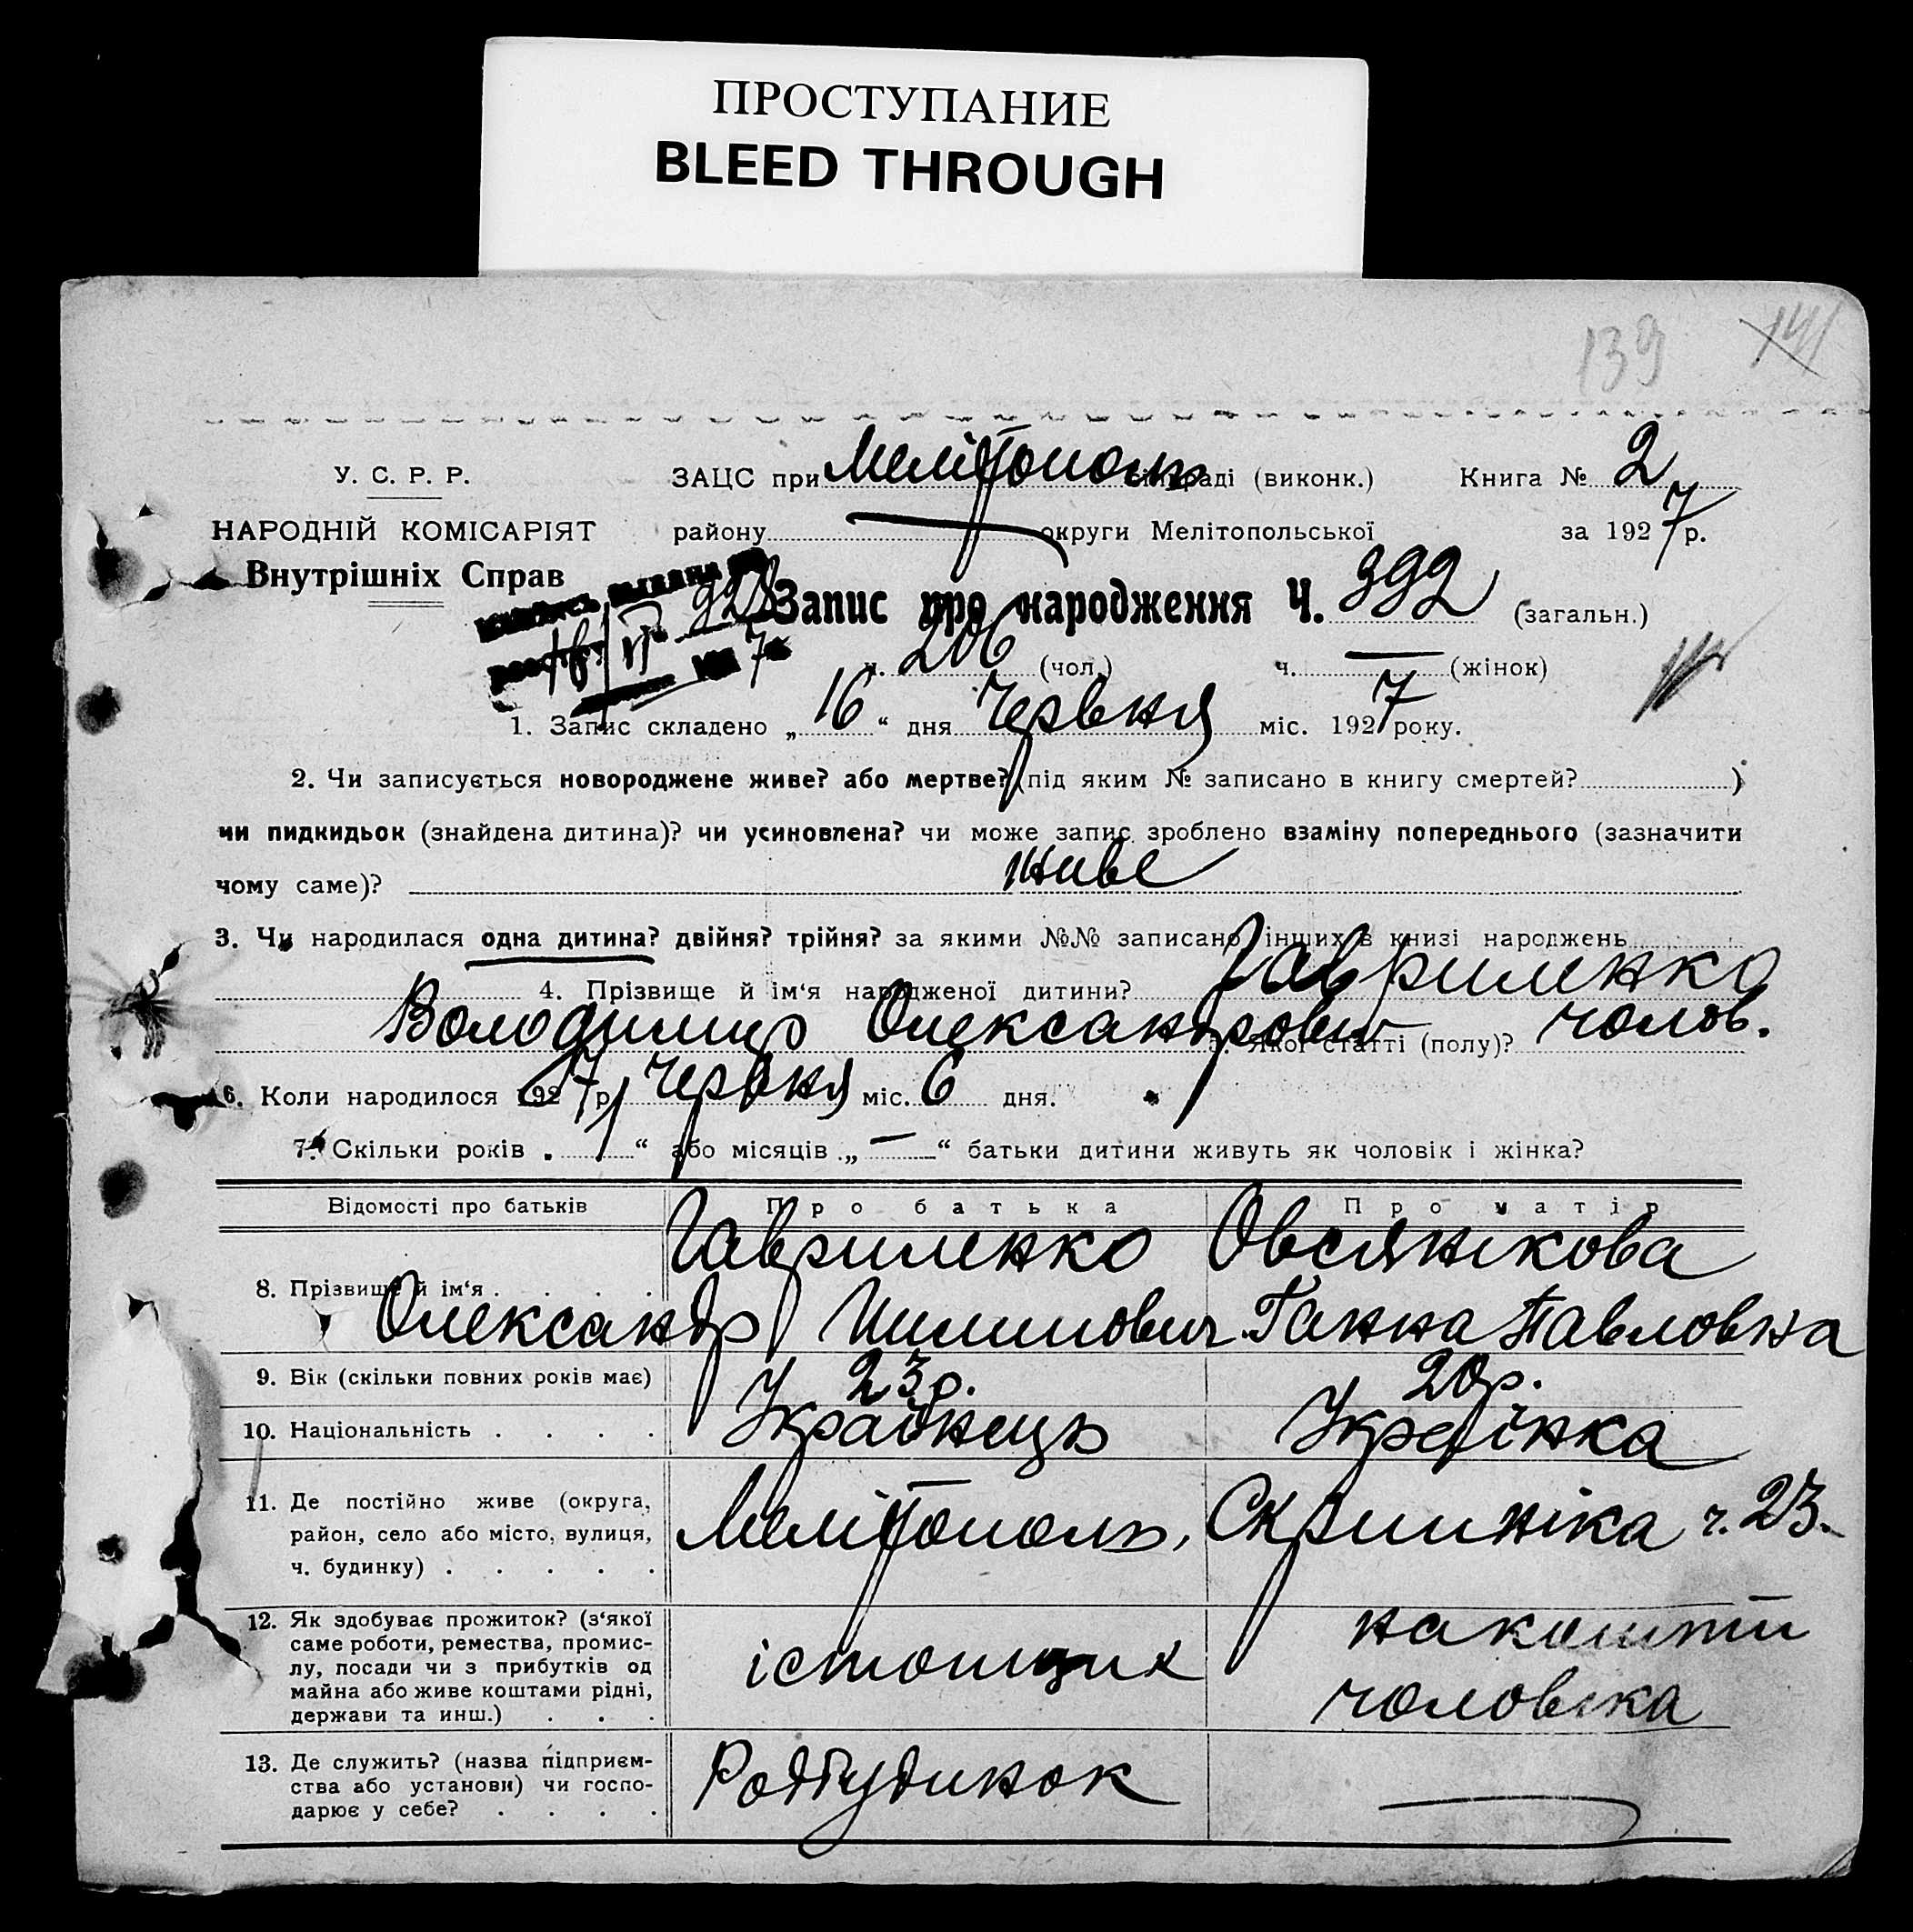 ПРОСТУПАНИЕ
BLEED THROUGH
139 141
У. С. Р. Р. ЗАЦС при Мелітополь раді (виконк.) Книга № 2
НАРОДНІЙ КОМІСАРІЯТ району — округи Мелітопольської за 1927 р.
Внутрішніх Справ
Запис про народження Ч. 392 (загальн.)
ч. 206 (чол.) ч. — (жінок)
1. Запис складено „16“ дня Червня міс. 1927 року.
2. Чи записується новороджене живе? або мертве? (під яким № записано в книгу смертей? )
чи пидкидьок (знайдена дитина)? чи усиновлена? чи може запис зроблено взаміну попереднього (зазначити
чому саме)? живе
3. Чи народилася одна дитина? двійня? трійня? за якими №№ записано інших в книзі народжень
4. Прізвище й ім‘я народженої дитини? Гавриленко
Володимир Олександрович 5. Якої статті (полу)? чолов.
6. Коли народилося 1927 р. Червня міс. 6 дня.
7. Скільки років „1“ або місяців „—“ батьки дитини живуть як чоловік і жінка?
Відомості про батьків Про батька Про матір
Гавриленко Овсянікова
8. Прізвище й ім‘я . . . .
Олександр Пилипович Ганна Павловна
9. Вік (скільки повних років має) 23 р. 20 р.
10. Національність . . . . Українець Українка
11. Де постійно живе (округа,
район, село або місто, вулиця, Мелітополь, Скрипніка ч. 23.
ч. будинку) . . . . .
12. Як здобуває прожиток? (з‘якої на кошти
саме роботи, ремества, промис-
лу, посади чи з прибутків од істопщик
майна або живе коштами рідні, чоловіка
держави та инш.) . . .
13. Де служить? (назва підприєм-
ства або установи) чи госпо- Родбудинок —
дарює у себе? . . . .